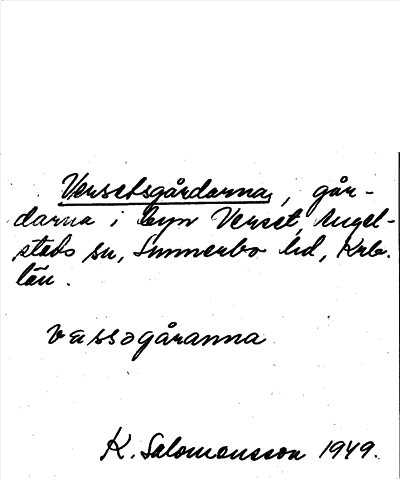 Versetsgårdarna, går-
darna i byn Verset, Angel-
stads sn, Sunnerbo hd, Krb.
län.
væssogåranna
K. Salomonsson 1949.